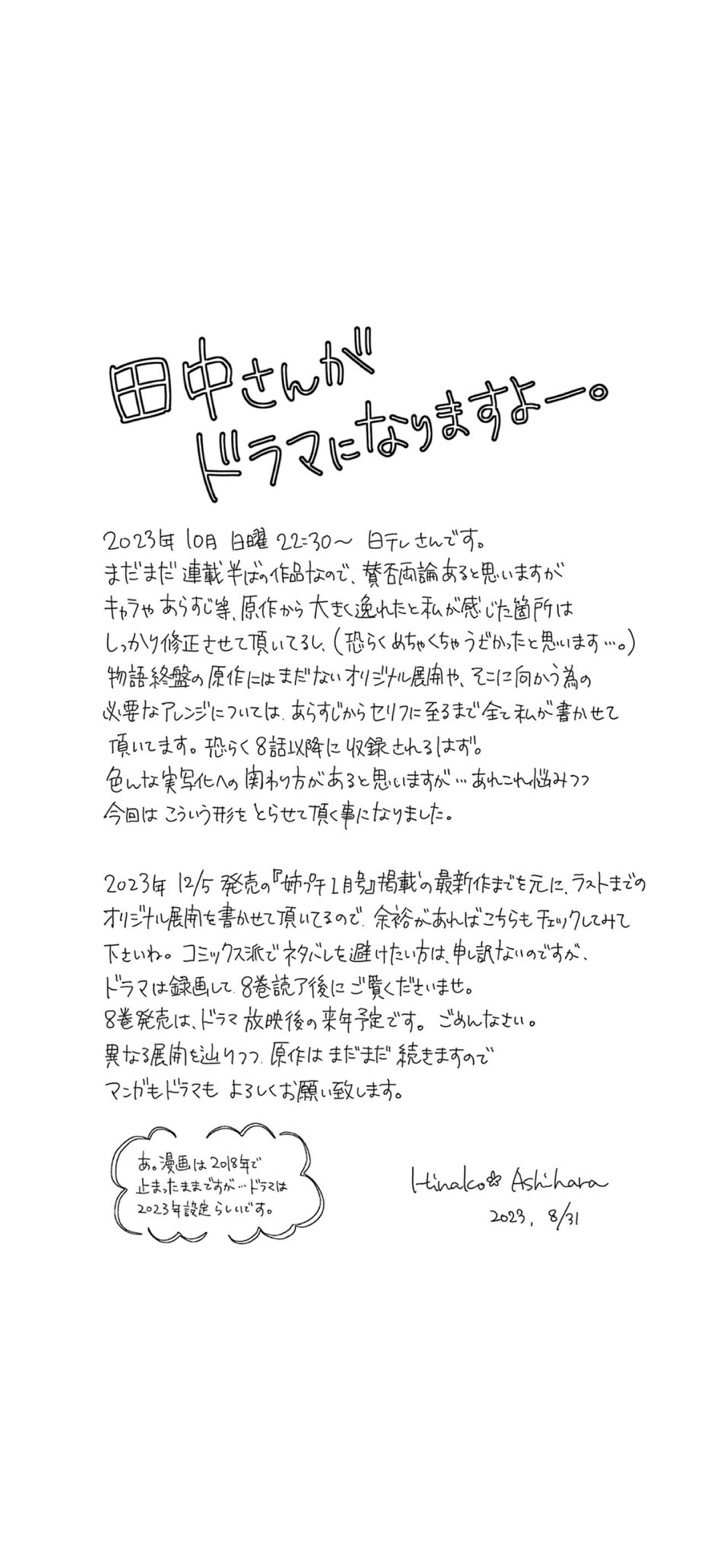 田中さんが
ドラマになりますよー。
2023年 10月 日曜 22:30〜 日テレさんです。
まだまだ 連載半ばの作品なので、賛否両論あると思いますが
キャラや あらすじ等、原作から 大きく逸れたと私が感じた箇所は
しっかり修正させて頂いてるし、(恐らくめちゃくちゃうざかったと思います…。)
物語終盤の原作にはまだないオリジナル展開や、そこに向かう為の
必要なアレンジについては、あらすじからセリフに至るまで全て私が書かせて
頂いてます。恐らく8話以降に収録されるはず。
色んな実写化への関わり方があると思いますが…あれこれ悩みつつ
今回は こういう形を とらせて頂く事になりました。
2023年 12/5 発売の『姉プチ1月号』掲載の最新作までを元に、ラストまでの
オリジナル展開を書かせて頂いてるので、余裕があればこちらもチェックしてみて
下さいね。コミックス派でネタバレを避けたい方は、申し訳ないのですが、
ドラマは録画して、8巻読了後にご覧くださいませ。
8巻発売は、ドラマ放映後の来年予定です。ごめんなさい。
異なる展開を辿りつつ、原作は まだまだ 続きますので
マンガもドラマも よろしくお願い致します。
あ。漫画は2018年で
止まったままですが…ドラマは
2023年設定らしいです。
Hinako✿Ashihara
2023, 8/31